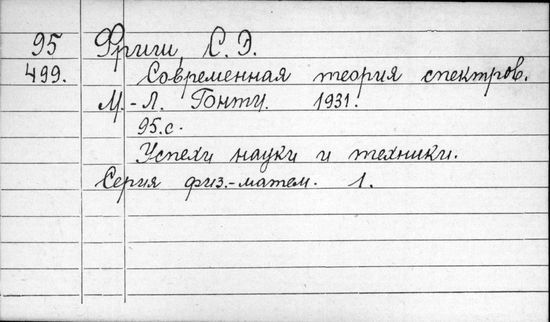 95 Фриш, С. Э.
499. Современная теория спектров.
М.-Л. Гонти. 1931.
95.с.
Успехи науки и техники.
Серия физ.-матем. 1.